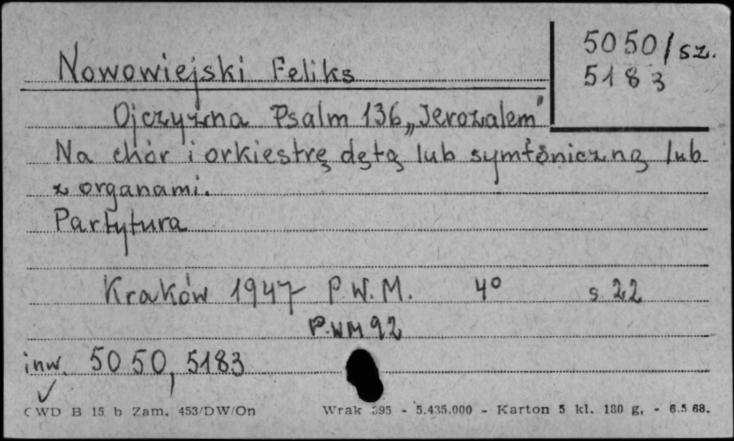 5050/sz.
5183
Nowowiejski Feliks
Ojczyzna Psalm 136 „Jerozalem"
Na chór i orkiestrę dętą lub symfoniczną lub
z organami.
Partytura
Kraków 1947 P.W.M. 4° s. 22
P.WM 92
inw. 5050, 5183
CWD B 15 b Zam. 453/DW/On Wrak 395 - 5.435.000 - Karton 5 kl. 180 g. - 6.5 68.